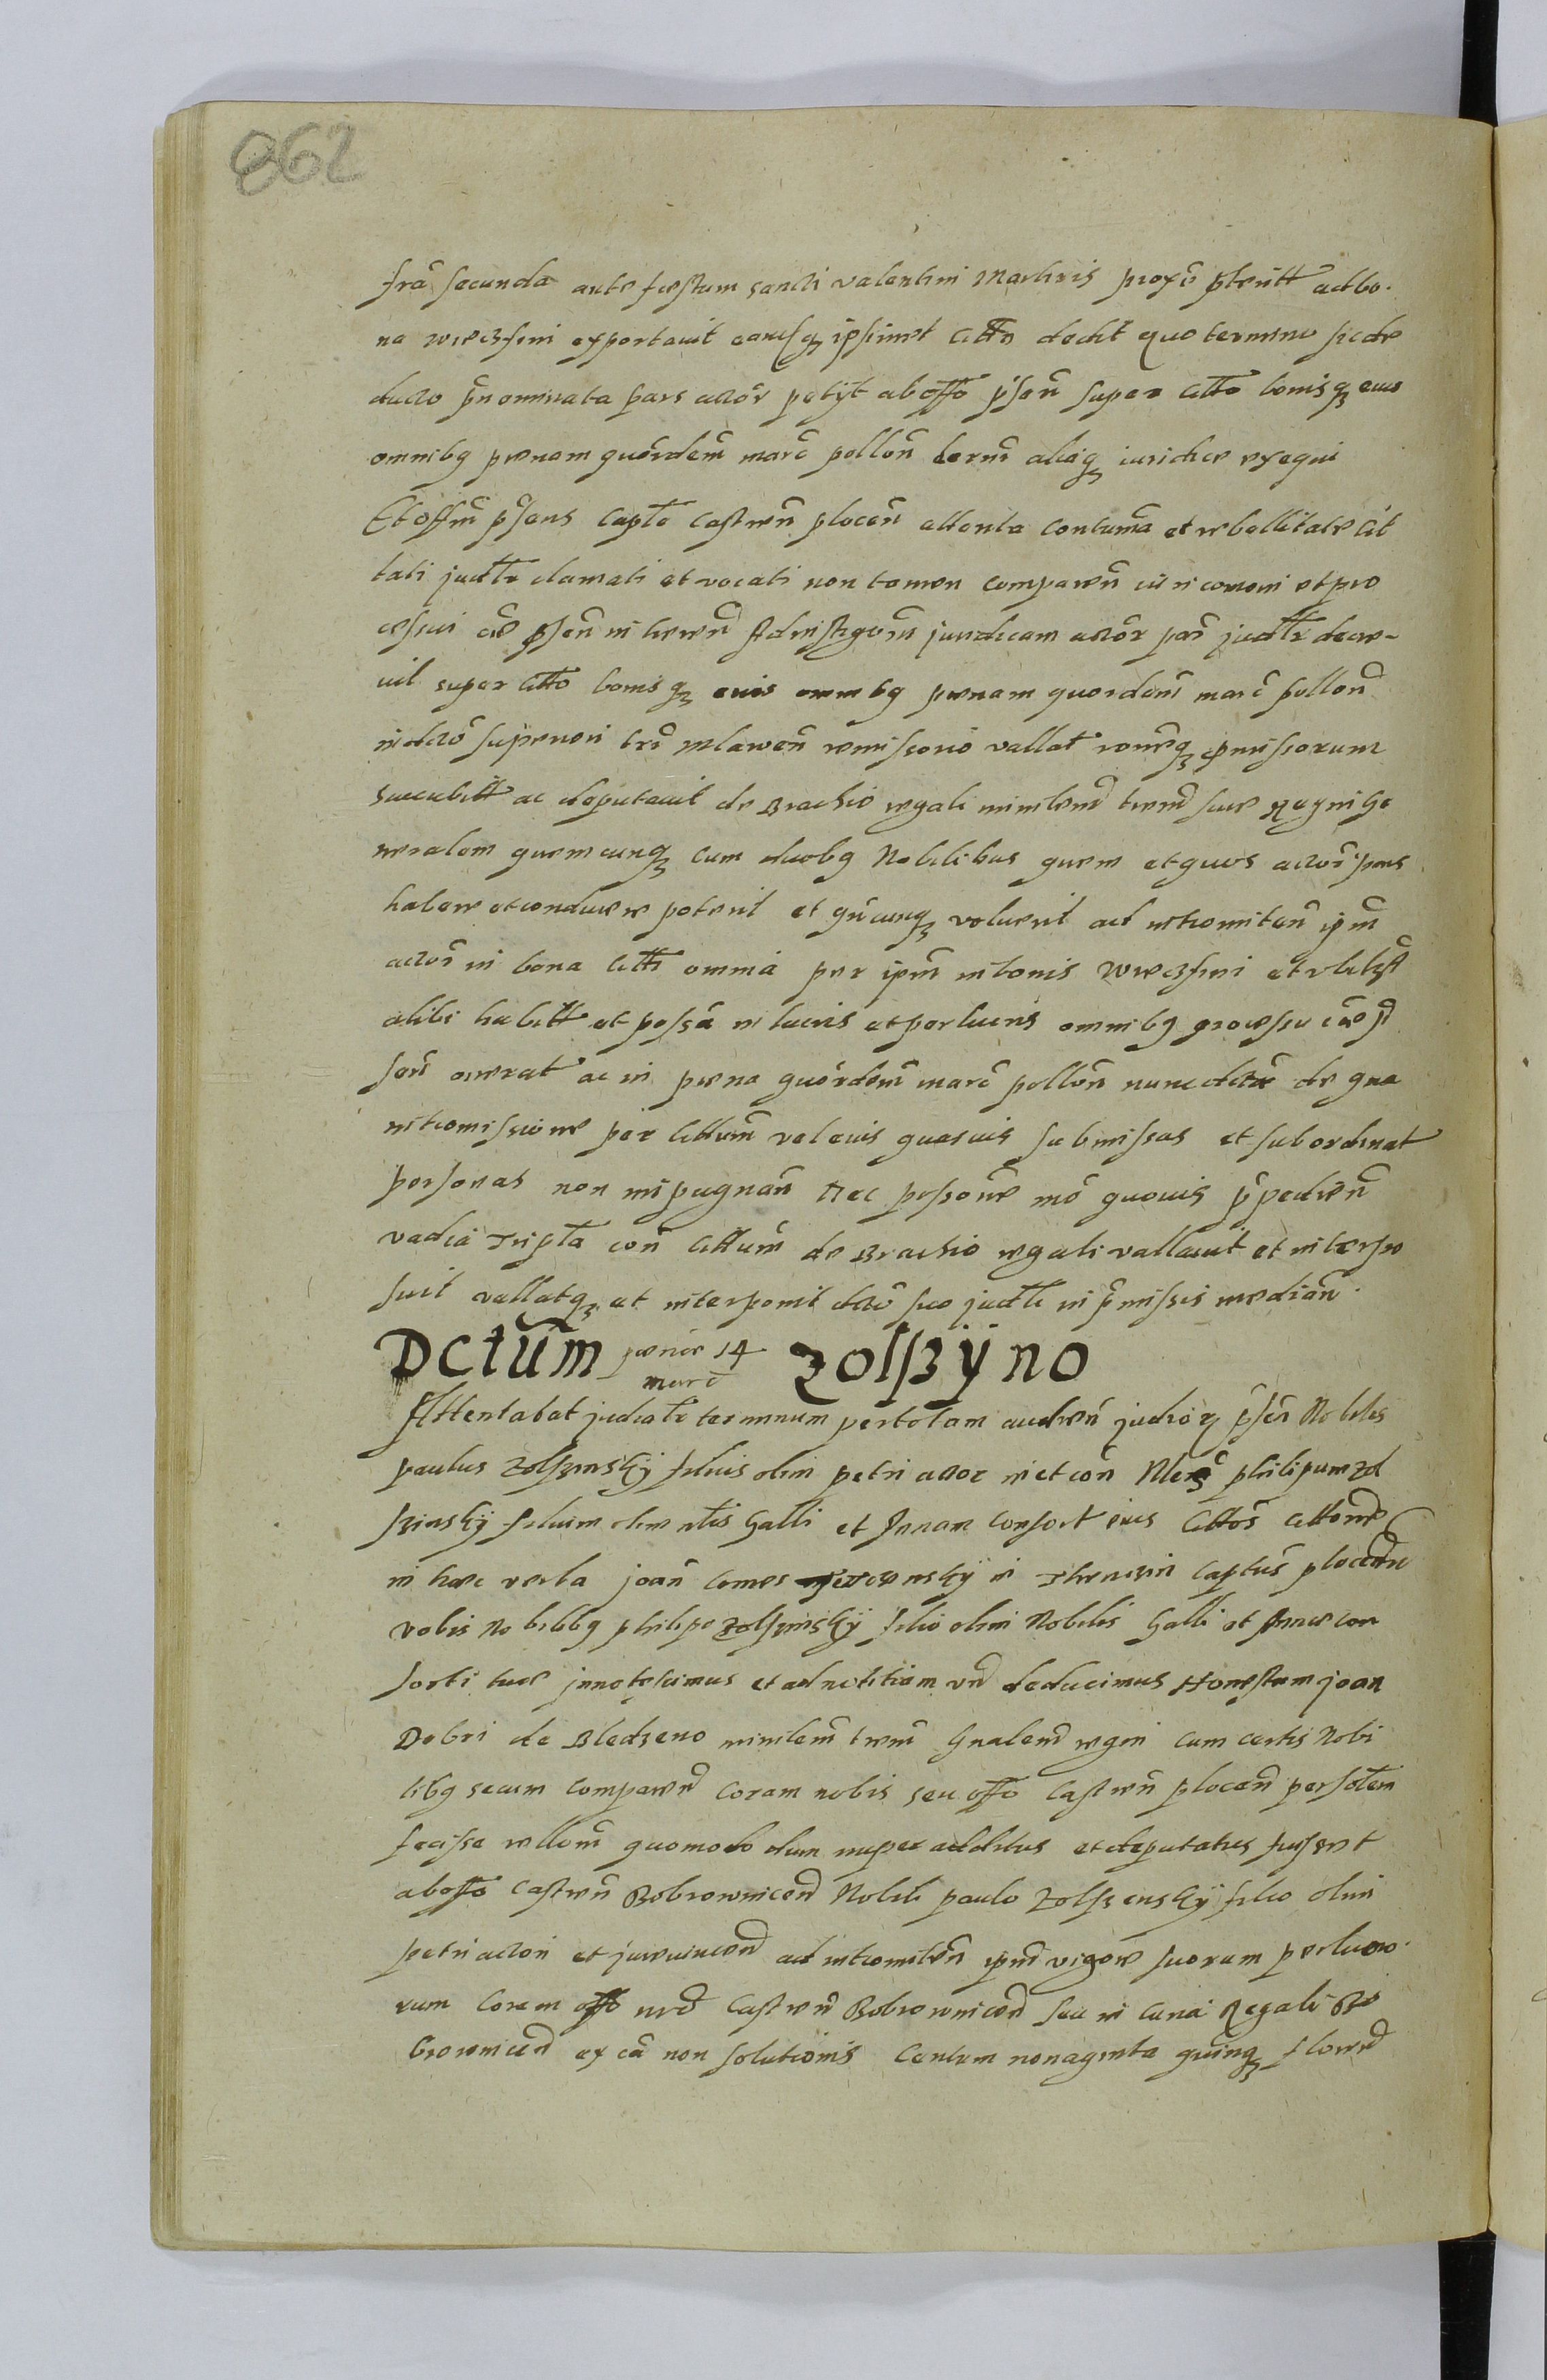 862
fra secunda ante festum sancti valentini Martiris proxe pteritt ad bo.
na Wieczfini exportavit eamqz ipsimet citto dedit quo termino sic de
ducto pnominata pars actor petyt ab offo psen super citto bonisqz eius
omnibq penam quordem marc pollon lucri aliaqz iuridice exequi
Et offm psens Captle Castren plocen attenta contuma et rebellitate cit
tati judtr clamati et vocati non tamen comparen et pro
cessui ce psen inheren Ad instigem juridicam actor par judtr decre-
vit super citto bonisqz euis omnibq penam quordem marc pollon
in dcto superiori tri Mlawen remissorio vallat roneqz pmissorum
succubitt ac deputavit de Brachio regali ministem trem sive Regni Ge
neralem quemcunqz cum duobq Nobilibus quem et quos actor pars
habere et conducere poterit et quncunqz voluerit ad intromiten ipm
actor in bona citti omnia per ipm in bonis Wieczfini et vbilzt
alibi habitt et possa in lucris et perlucris omnibq processu cae p
sen onerat ac in pena quordem marc pollon nunc dcta de qua
intromissione per cittum vel euis quasuis submissas et subordinat
personas non impugnan Nec pessone mo quouis ppedien
vadia tripta con cittum de Brachio regali vallauit et interpo
suit vallatqz et interponit dcto suo judtli in pmissis median.
Dctum penae 14 marc Zolszyno
Attentabat judiatr terminum pertotam audien judior psen Nobilis
paulus Zolszinskÿ filius olim petri actor in et con Nles philipum Zol
szinskÿ filium olim nlis Galli et Annam Consort eius Cittos citone
in haec verba joan Comes in Captus plocen
vobis Nobilibbq philipo Zolszinskÿ filio olim Nobilis Galli et Annae con
sorti tuae innotescimus et ad notitiam vn deducimus Honestum joan
Dobri de Bledzeno ministem trem Gnalem regni cum certis Nobi
libq secum comparen coram nobis seu offo Castren plocen personlem
fecisse rellom quomodo dum nuper additus et deputatus fuisset
ab offo Castren Bobrownicen Nobili paulo Zolszenskÿ filio olim
petri actori et jurevincen ad intromiten ipm vigore suorum perlucro.
rum Coram offo Castren Bobrownicen seu in Curia Regali Bo
brownicen ex ca non solutionis Centum nonaginta quinqz floren